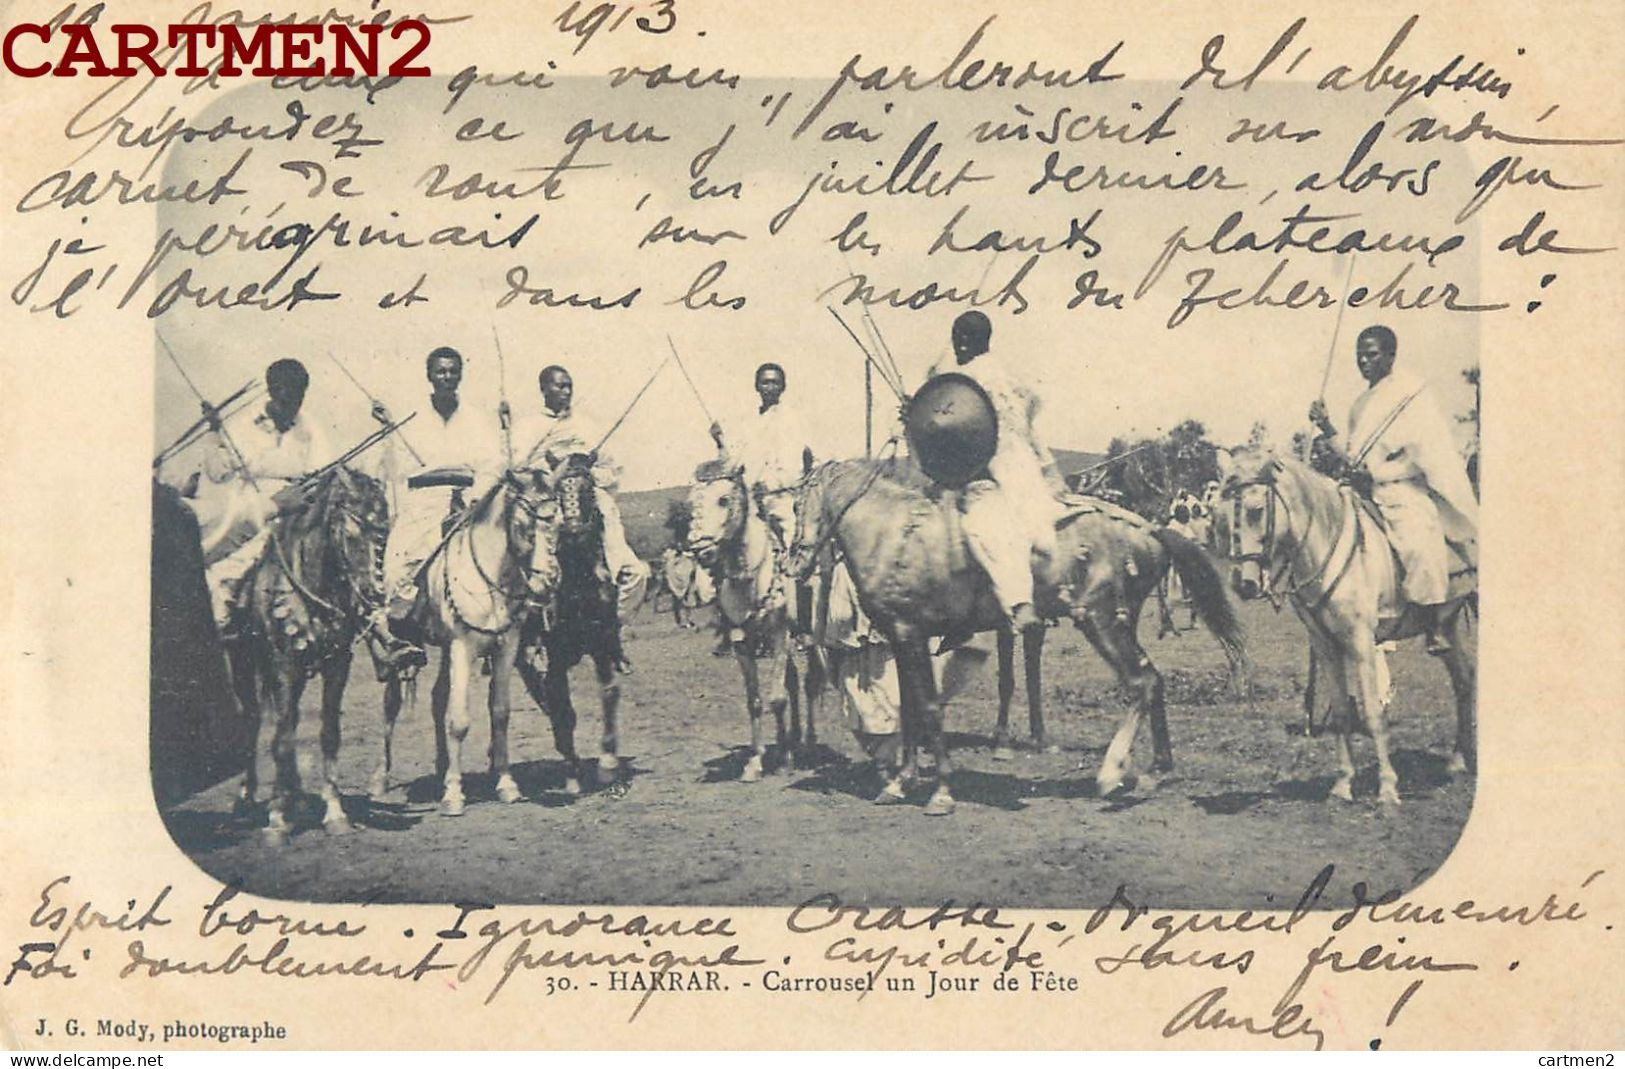 Janvier 1913.
CARTMEN2
A ceux qui vous parleront de l'abyssin,
répondez ce que j'ai inscrit sur mon
carnet de route, en juillet dernier, alors que
je pérégrinais sur les hauts plateaux de
l'Ouest et dans les monts du Tchercher :
Esprit borné. Ignorance Crasse. Orgueil démesuré.
Foi doublement punique. Cupidité sans frein.
30. - HARRAR. - Carrousel un Jour de Fête
!
J. G. Mody, photographe
delcampe.net
cartmen2